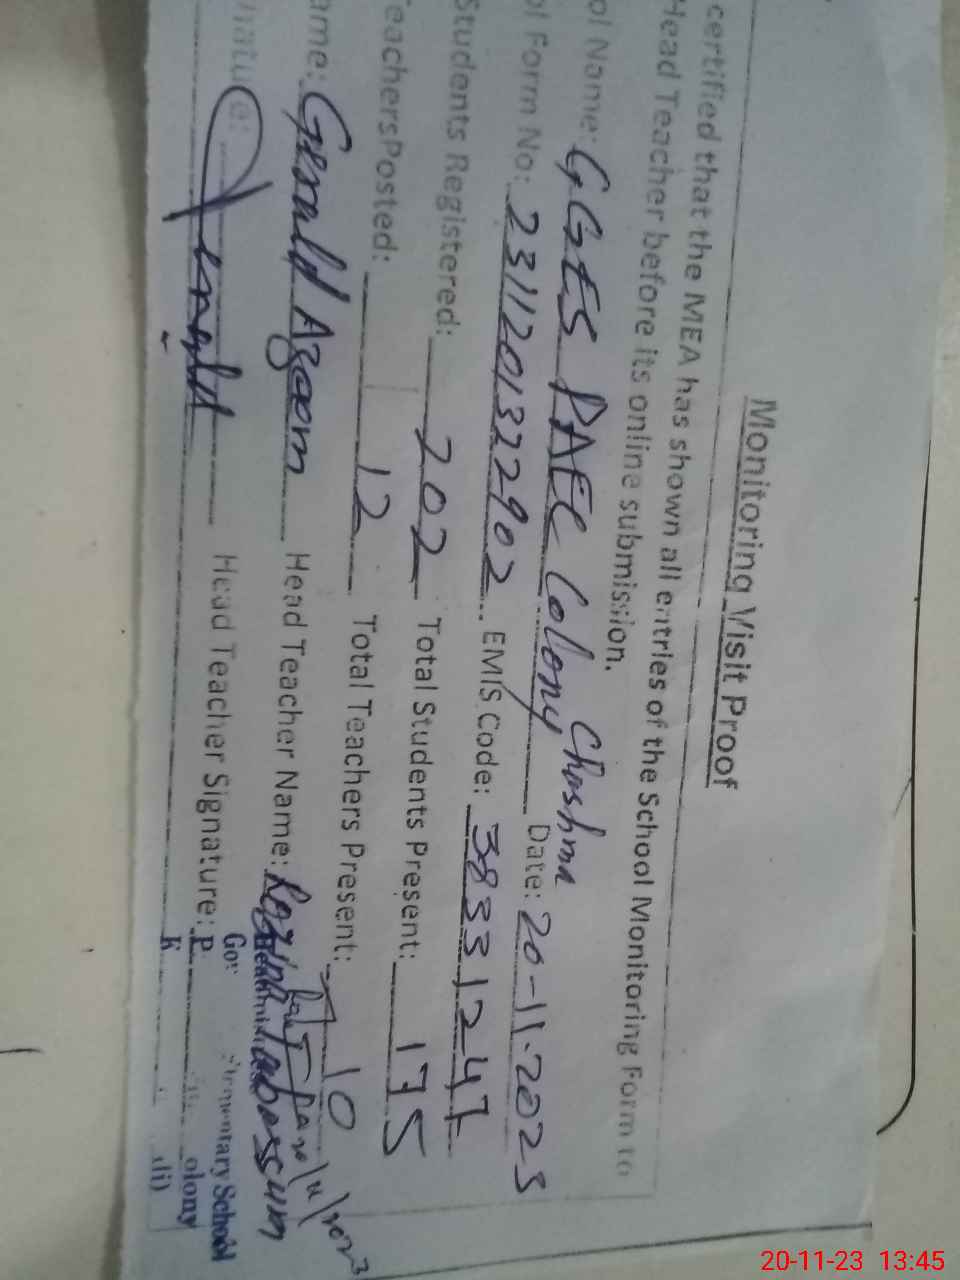 Monitoring Visit Proof
certified that the MEA has shown all entries of the School Monitoring Form to
Head Teacher before its online submission.
ol Name: GGES PAEC Colony Chashma Date: 20-11-2023
ol Form No: 2311201322902 EMIS Code: 38331247
Students Registered: 202 Total Students Present: 175
TeachersPosted: 12 Total Teachers Present: 10
ame: Gerald Azeem Head Teacher Name: Tabassum
nature: Head Teacher Signature:
Elementary School
olony
20-11-23 13:45